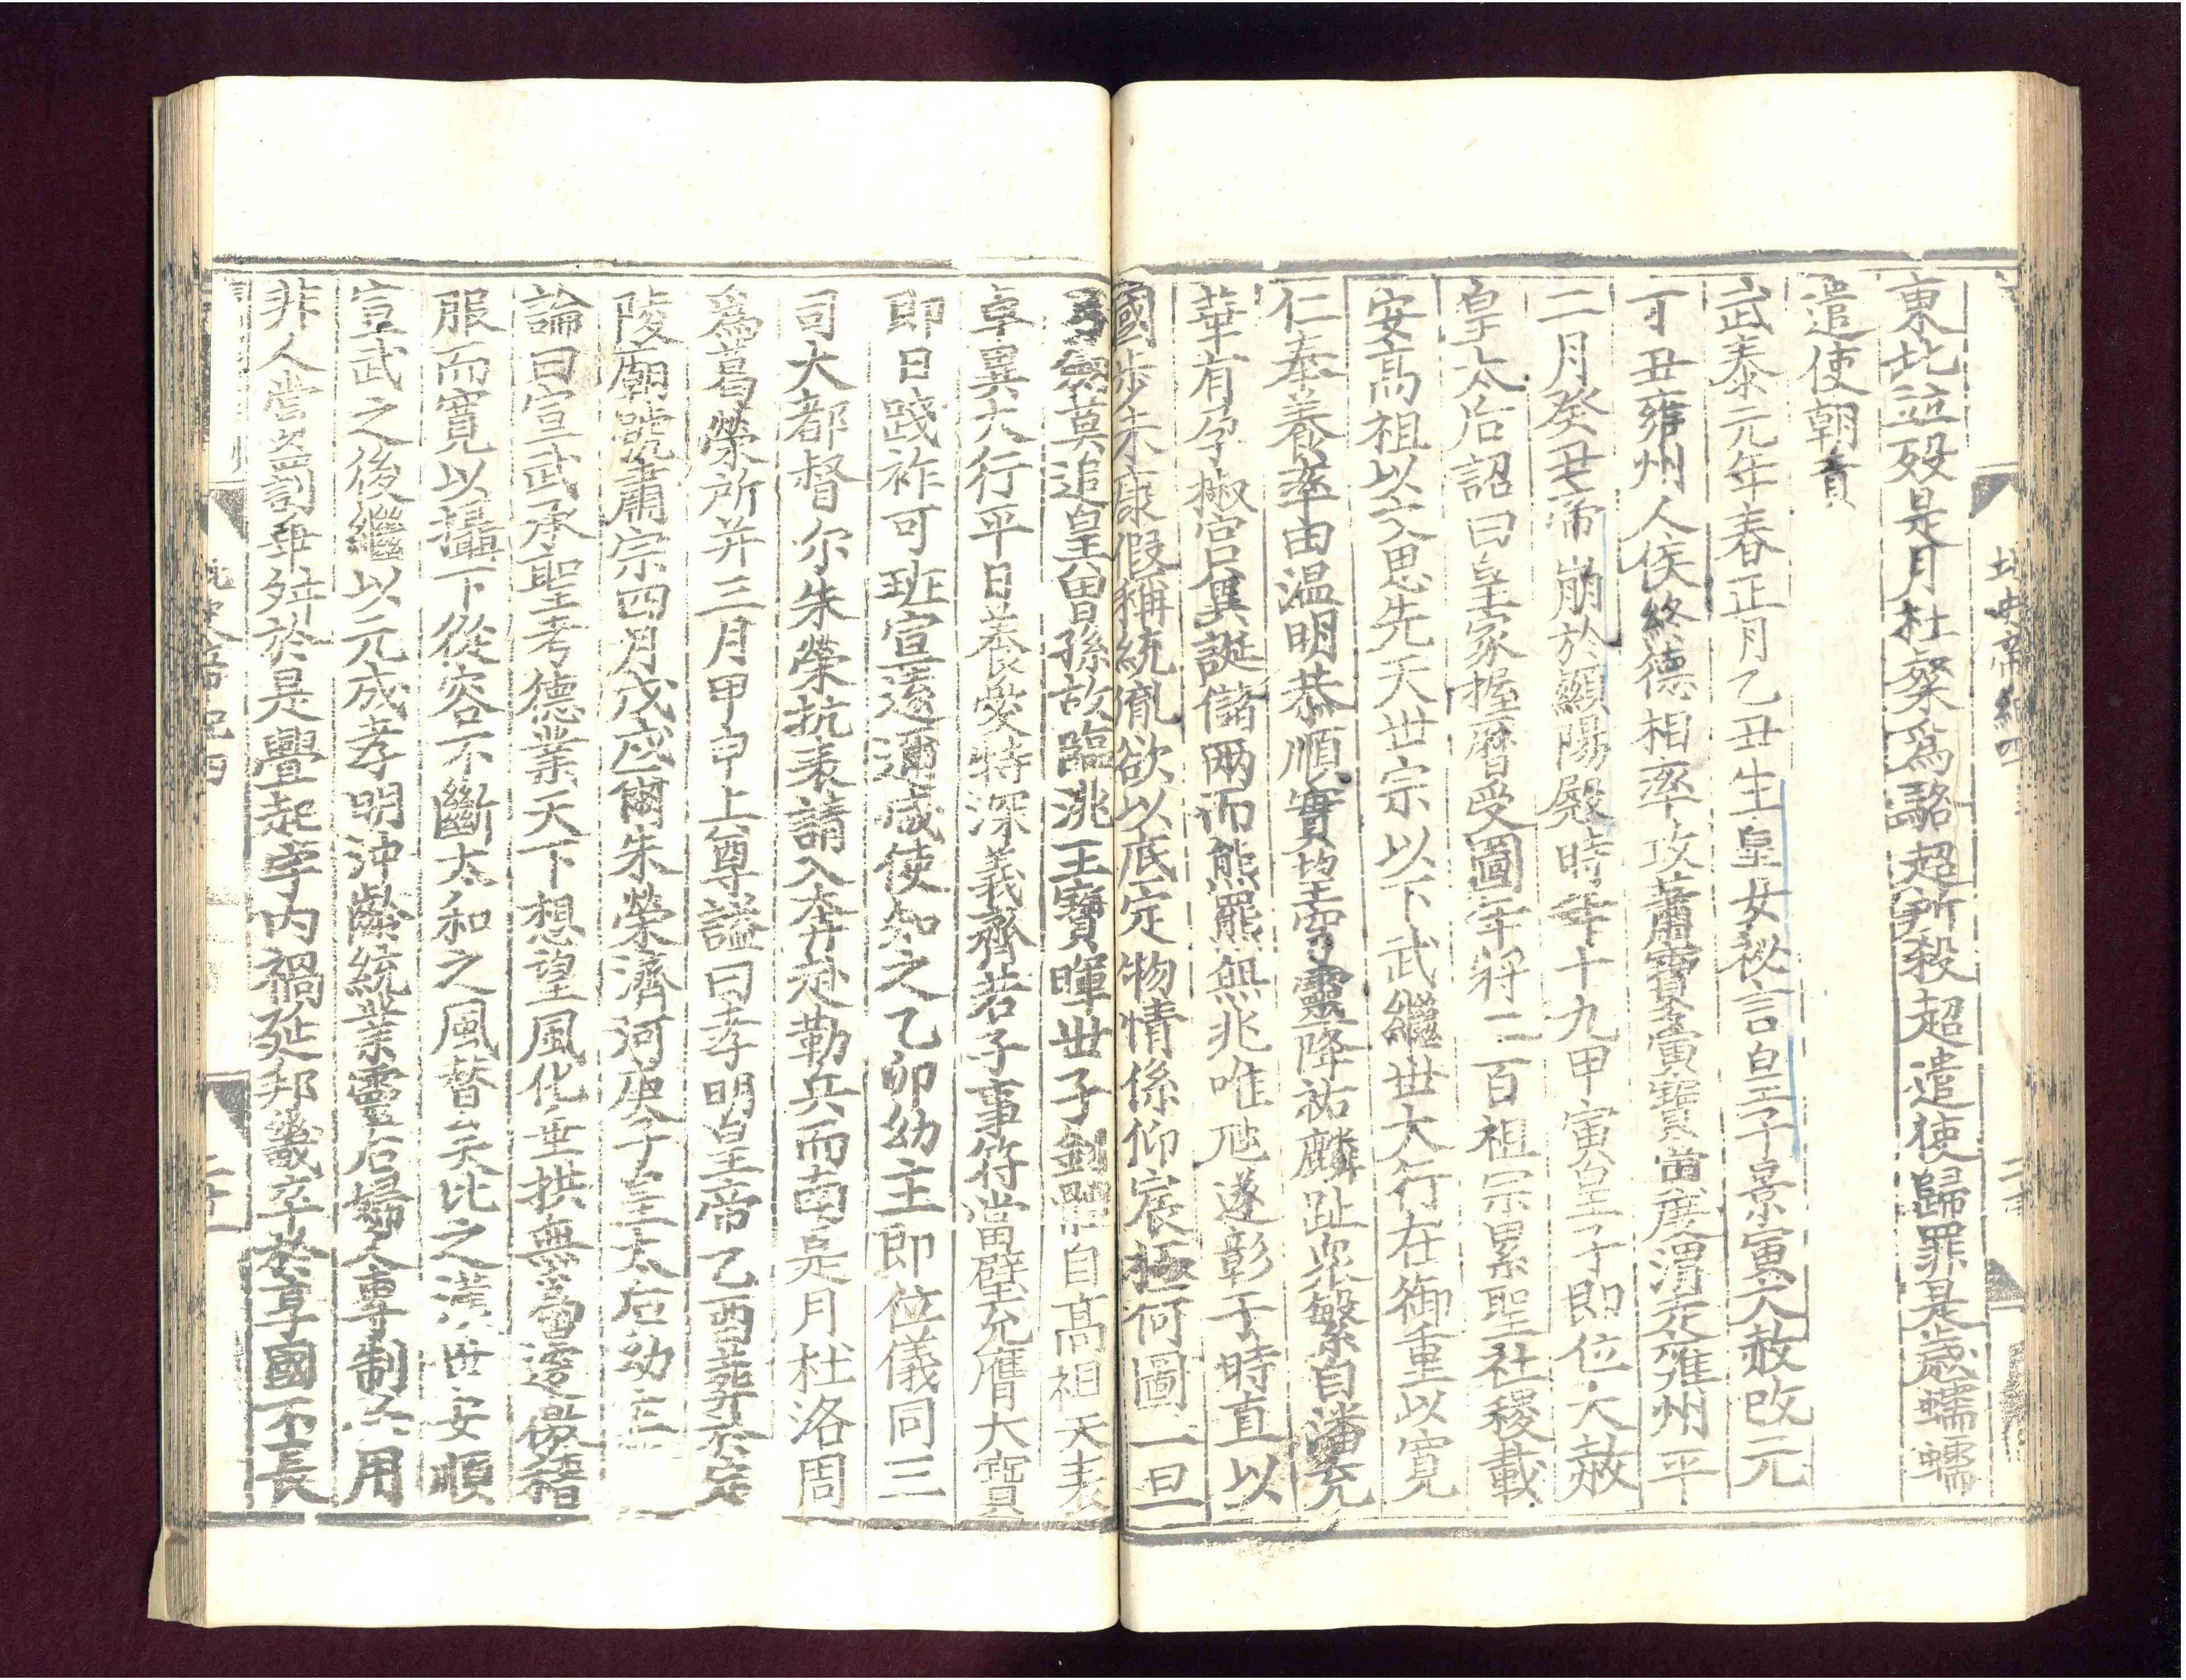 東北並歿是月杜粲爲駱超所殺超遣使歸罪是歲蠕蠕
遣使朝貢
武泰元年春正月乙丑生皇女秘言皇子景寅大赦改元
丁丑雍州人侯終德相率攻蕭寶夤寶夤度渭走雍州平
二月癸丑帝崩於顯陽殿時年十九甲寅皇子即位大赦
皇太后詔曰皇家握曆受圖年將二百祖宗累聖社稷載
安高祖以文思先天世宗以下武繼世大行在御重以寬
仁奉養率由温明恭順實望穹靈降祐麟趾衆繁自潘充
華有孕椒宮冀誕儲兩而熊羆無兆唯虺遂彰于時直以
國步未康假稱統胤欲以底定物情係仰宸極何圖一旦
弓劒莫追皇曽孫故臨洮王寶暉世子釗體自高祖天表
卓異大行平日養愛特深義齊若子事符當璧允膺大寶
即日踐祚可班宣遠邇咸使知之乙卯幼主即位儀同三
司大都督尔朱榮抗表請入奔赴勒兵而南是月杜洛周
爲葛榮所并三月甲申上尊謚曰孝明皇帝乙酉葬於定
陵廟號肅宗四月戊戌爾朱榮濟河庚子皇太后幼主
論曰宣武承聖考德業天下想望風化垂拱無爲邊徼稽
服而寬以攝下從容不斷太和之風替矣比之漢世安順
宣武之後繼以元成孝明沖齡統業靈后婦人專制任用
非人賞罰乖舛於是舋起宇内禍延邦畿卒於享國不長